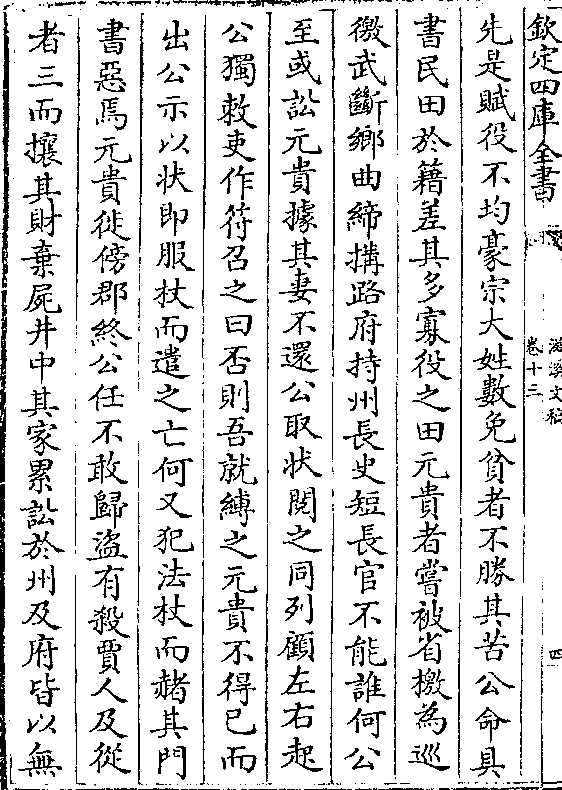 欽定四庫全書
卷十三
四
先是賦役不均豪宗大姓數免貧者不勝其苦公命具
書民田於籍差其多寡役之田元貴者嘗被省檄為巡
徼武斷鄉曲締搆路府持州長吏短長官不能誰何公
至或訟元貴據其妻不還公取状閱之同列顧左右起
公獨敕吏作符召之曰否則吾就縛之元貴不得已而
出公示以状即服杖而遣之亡何又犯法杖而赭其門
書惡焉元貴徙傍郡終公任不敢歸盜有殺賈人及從
者三而攘其財棄屍井中其家累訟於州及府皆以無